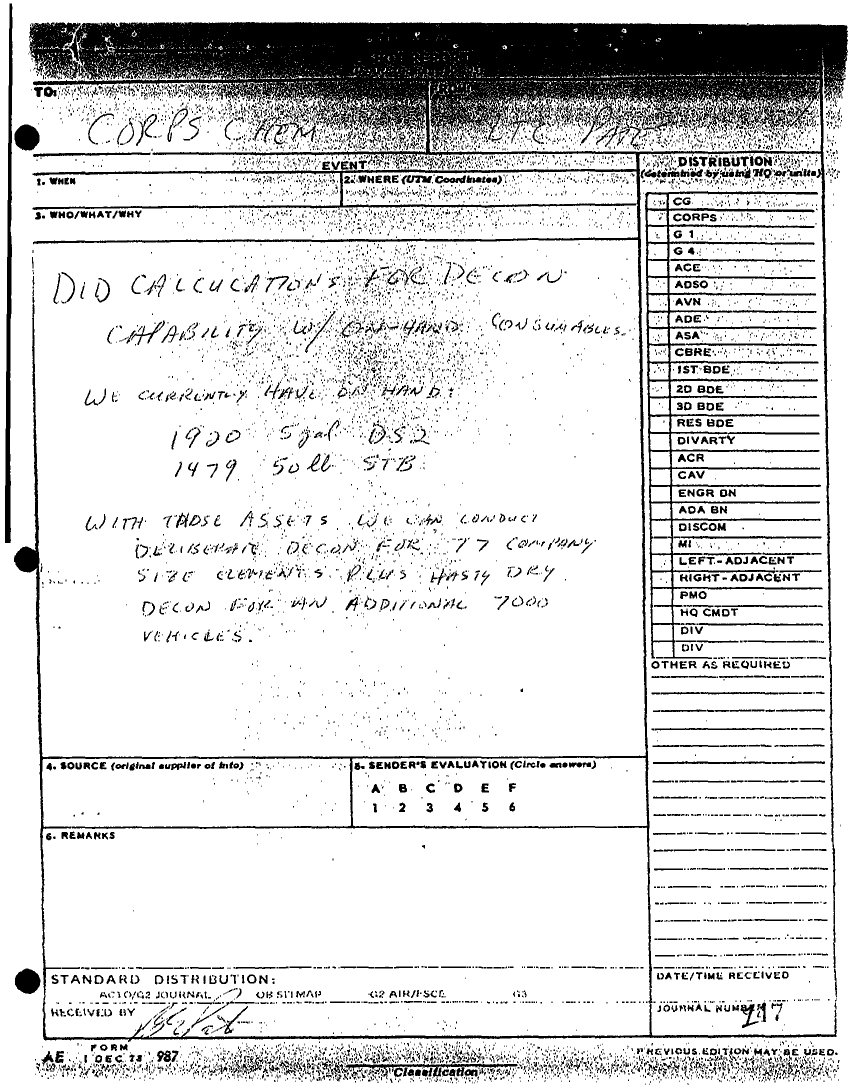 TO:
CORPS CHEM
LTC PATE
EVENT
1. WHEN
2. WHERE (UTM Coordinates)
3. WHO/WHAT/WHY
DID CALCULATIONS FOR DECON
CAPABILITY W/ ON-HAND CONSUMABLES.
WE CURRENTLY HAVE ON HAND:
1920 5 gal DS2
1479 50 lb STB
WITH THOSE ASSETS WE CAN CONDUCT
DELIBERATE DECON FOR 77 COMPANY
SIZE ELEMENTS PLUS HASTY DRY
DECON FOR AN ADDITIONAL 7000
VEHICLES.
4. SOURCE (original supplier of info)
5. SENDER'S EVALUATION (Circle answers)
A B C D E F
1 2 3 4 5 6
6. REMARKS
DISTRIBUTION
(determined by using HQ or units)
CG
CORPS
G 1
G 4
ACE
ADSO
AVN
ADE
ASA
CBRE
1ST BDE
2D BDE
3D BDE
RES BDE
DIVARTY
ACR
CAV
ENGR BN
ADA BN
DISCOM
MI
LEFT-ADJACENT
RIGHT-ADJACENT
PMO
HQ CMDT
DIV
DIV
OTHER AS REQUIRED
STANDARD DISTRIBUTION:
ACTO/G2 JOURNAL OB SITMAP G2 AIR/FSCE G3
RECEIVED BY
DATE/TIME RECEIVED
JOURNAL NUMBER
AE FORM 1 DEC 78 987
PREVIOUS EDITION MAY BE USED.
Classification